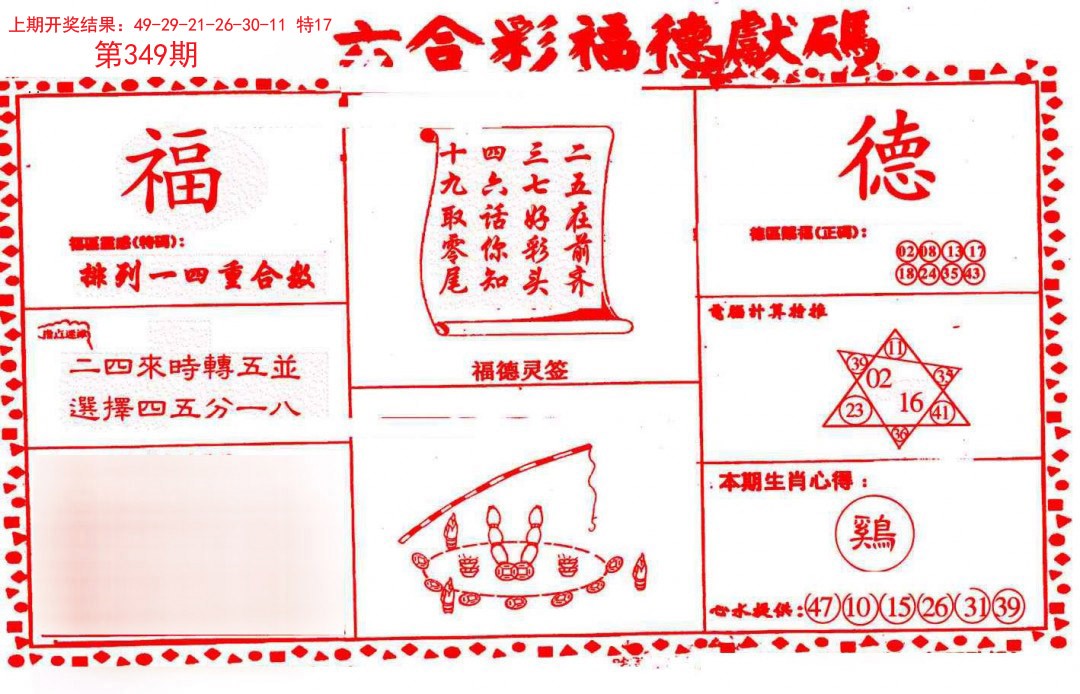 上期开奖结果: 49-29-21-26-30-11 特17
第349期
六合彩福德獻碼
福
福區靈感(特碼):
排列一四重合数
指点迷津
二四來時轉五並
選擇四五分一八
二五在前齐
三七好彩头
四六话你知
十九取零尾
福德灵签
德
德區賜福(正碼):
02 08 13 17
18 24 35 43
電腦計算粉推
11
39 35
02
16
23 41
36
本期生肖心得:
鷄
心水提供: 47 10 15 26 31 39